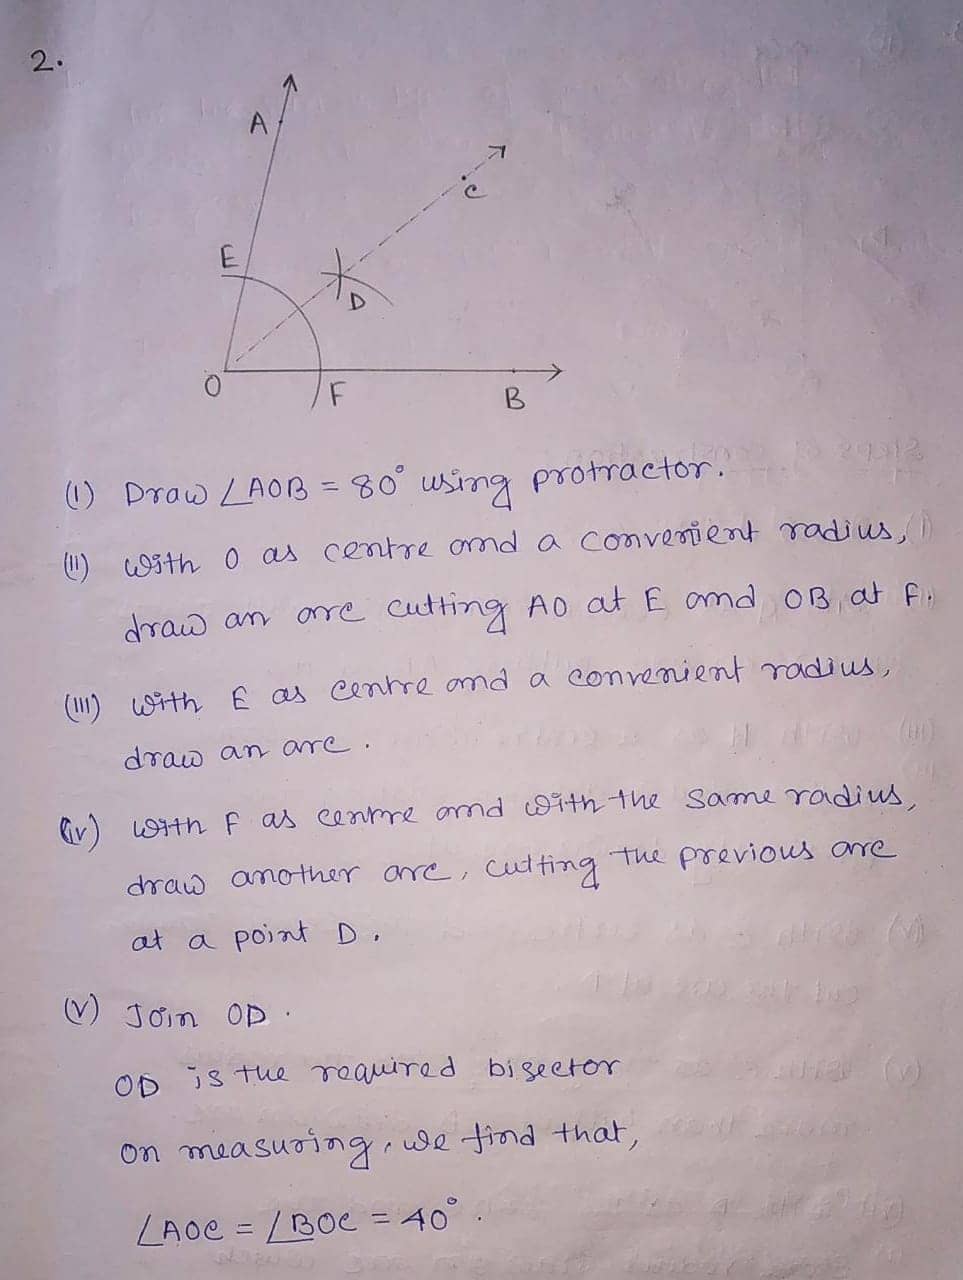 2.
A
C
E
D
O
F
B
(I) Draw ∠AOB = 80° using protractor.
(II) With O as centre and a convenient radius,
draw an arc cutting AO at E and OB at F.
(III) With E as centre and a convenient radius,
draw an arc.
(iv) With F as centre and with the same radius,
draw another arc, cutting the previous arc
at a point D.
(V) Join OD.
OD is the required bisector
On measuring, we find that,
∠AOC = ∠BOC = 40°.